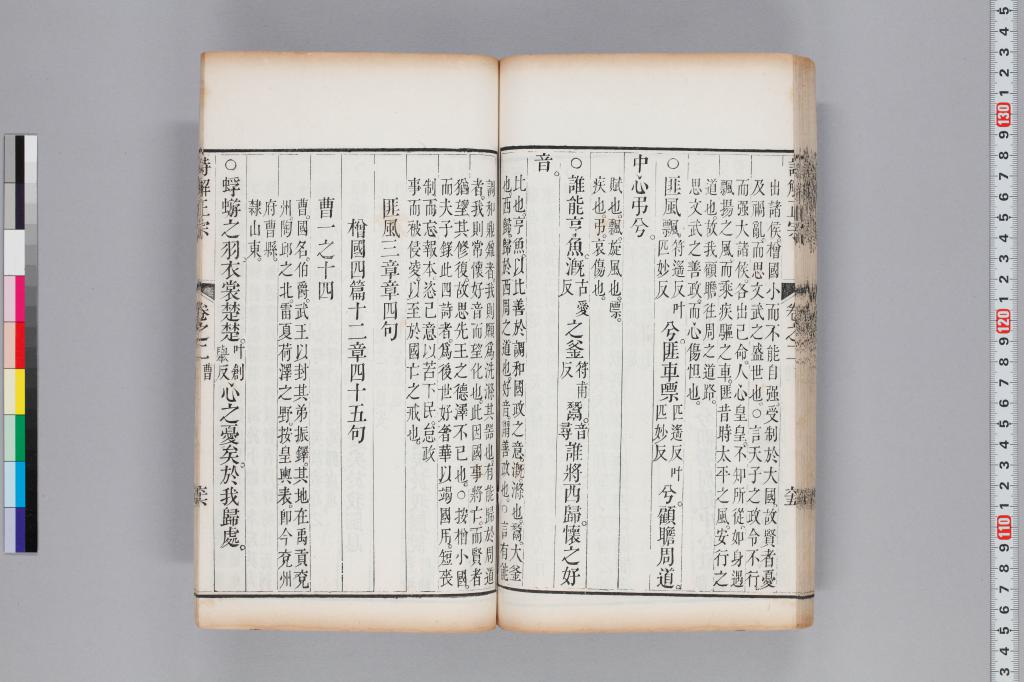 出諸侯檜國小而不能自强受制於大國故賢者憂
及禍亂而思文武之盛世也○言天子之政令不行
而强大諸侯各出已命人心皇皇不知所從如身遇
飄揚之風而乘疾驅之車匪昔時太平之風安行之
道也故我顧瞻往周之道路
思文武之善政而心傷怛也
○匪風飄飄符遥反叶匹妙反兮匪車嘌匹遥反叶匹妙反兮顧瞻周道
中心弔兮
賦也飄旋風也嘌
疾也弔哀傷也
○誰能亨魚溉古愛反之釜符甫反鬵音尋誰將西歸懷之好
音
比也亨魚以比善於調和國政之意溉滌也鬵大釜
也西歸歸於西周之道也好音周善政也○言有能
調和魚雖者我則願爲洗滌其器也有能歸於周道
者我則常懷好音而望化也此因國事將亡而賢者
猶望其修復故思先王之德澤不已也○按檜小國
而夫子錄此四詩者爲後世好奢華以竭國用短喪
制而忘報本恣己意以苦下民怠政
事而被侵凌以至於國亡之戒也
匪風三章章四句
檜國四篇十二章四十五句
曹一之十四
曹國名伯爵武王以封其弟振鐸其地在禹貢兗
州陶邱之北雷夏荷澤之野按皇輿表即今兗州
府曹縣
隸山東
○蜉蝣之羽衣裳楚楚叶創舉反心之憂矣於我歸處
詩解正宗
卷之二
曹